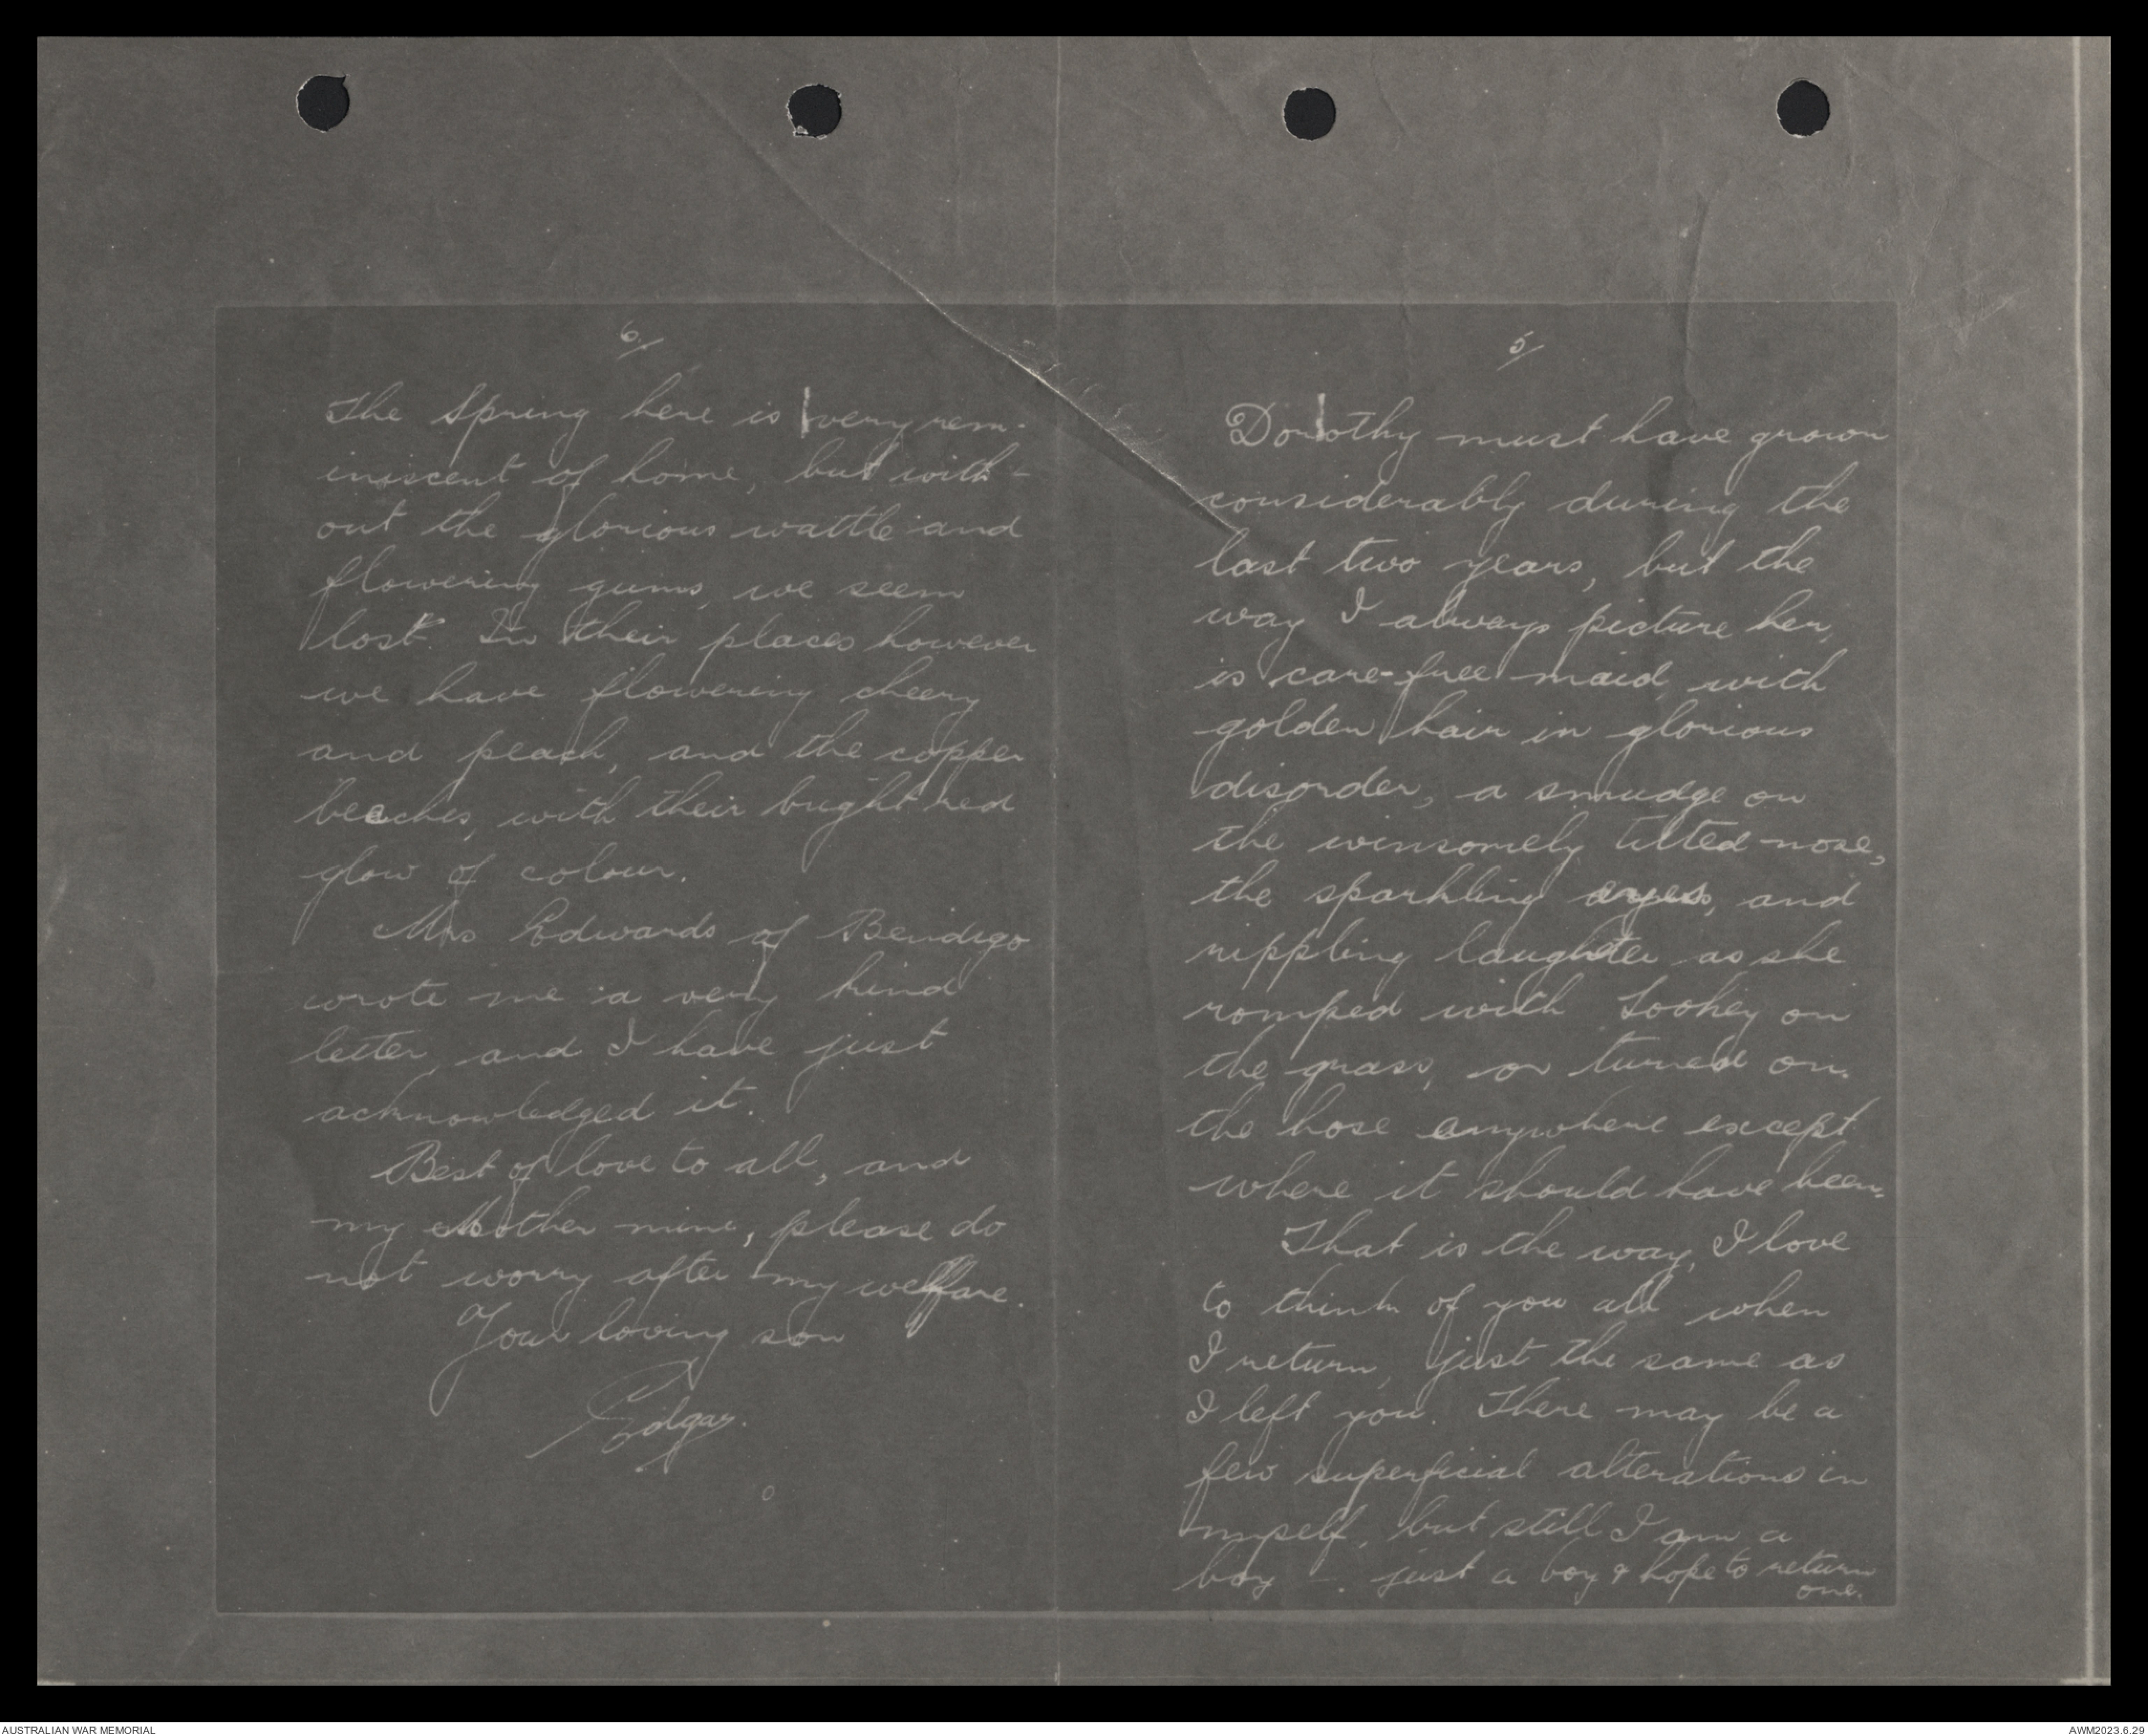 5/
Dorothy must have grown
considerably during the
last two years, but the
way I always picture her,
is care-free maid, with
golden hair in glorious
disorder, a smudge on
the winsomely tilted nose,
the sparkling eyes, and
rippling laughter as she
romped with Sookey on
the grass, or turned on
the hose anywhere except
where it should have been.
That is the way, I love
to think of you all when
I return, just the same as
I left you. There may be a
few superficial alterations in
myself, but still I am a
boy -. just a boy & hope to return
one.
6/
The Spring here is very rem-
iniscent of home, but with-
out the glorious wattle and
flowering gums, we seem
lost. In their places however
we have flowering cheery
and peach, and the copper
beaches, with their bright red
glow of colour.
Mrs Edwards of Bendigo
wrote me a very kind
letter, and I have just
acknowledged it.
Best of love to all, and
my Mother mine, please do
not worry after my welfare.
Your loving son
Edgar.
AUSTRALIAN WAR MEMORIAL
AWM2023.6.29